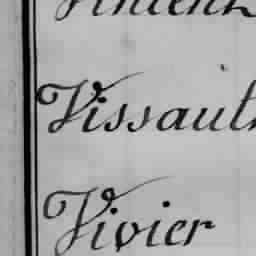 Vissault
Vivier